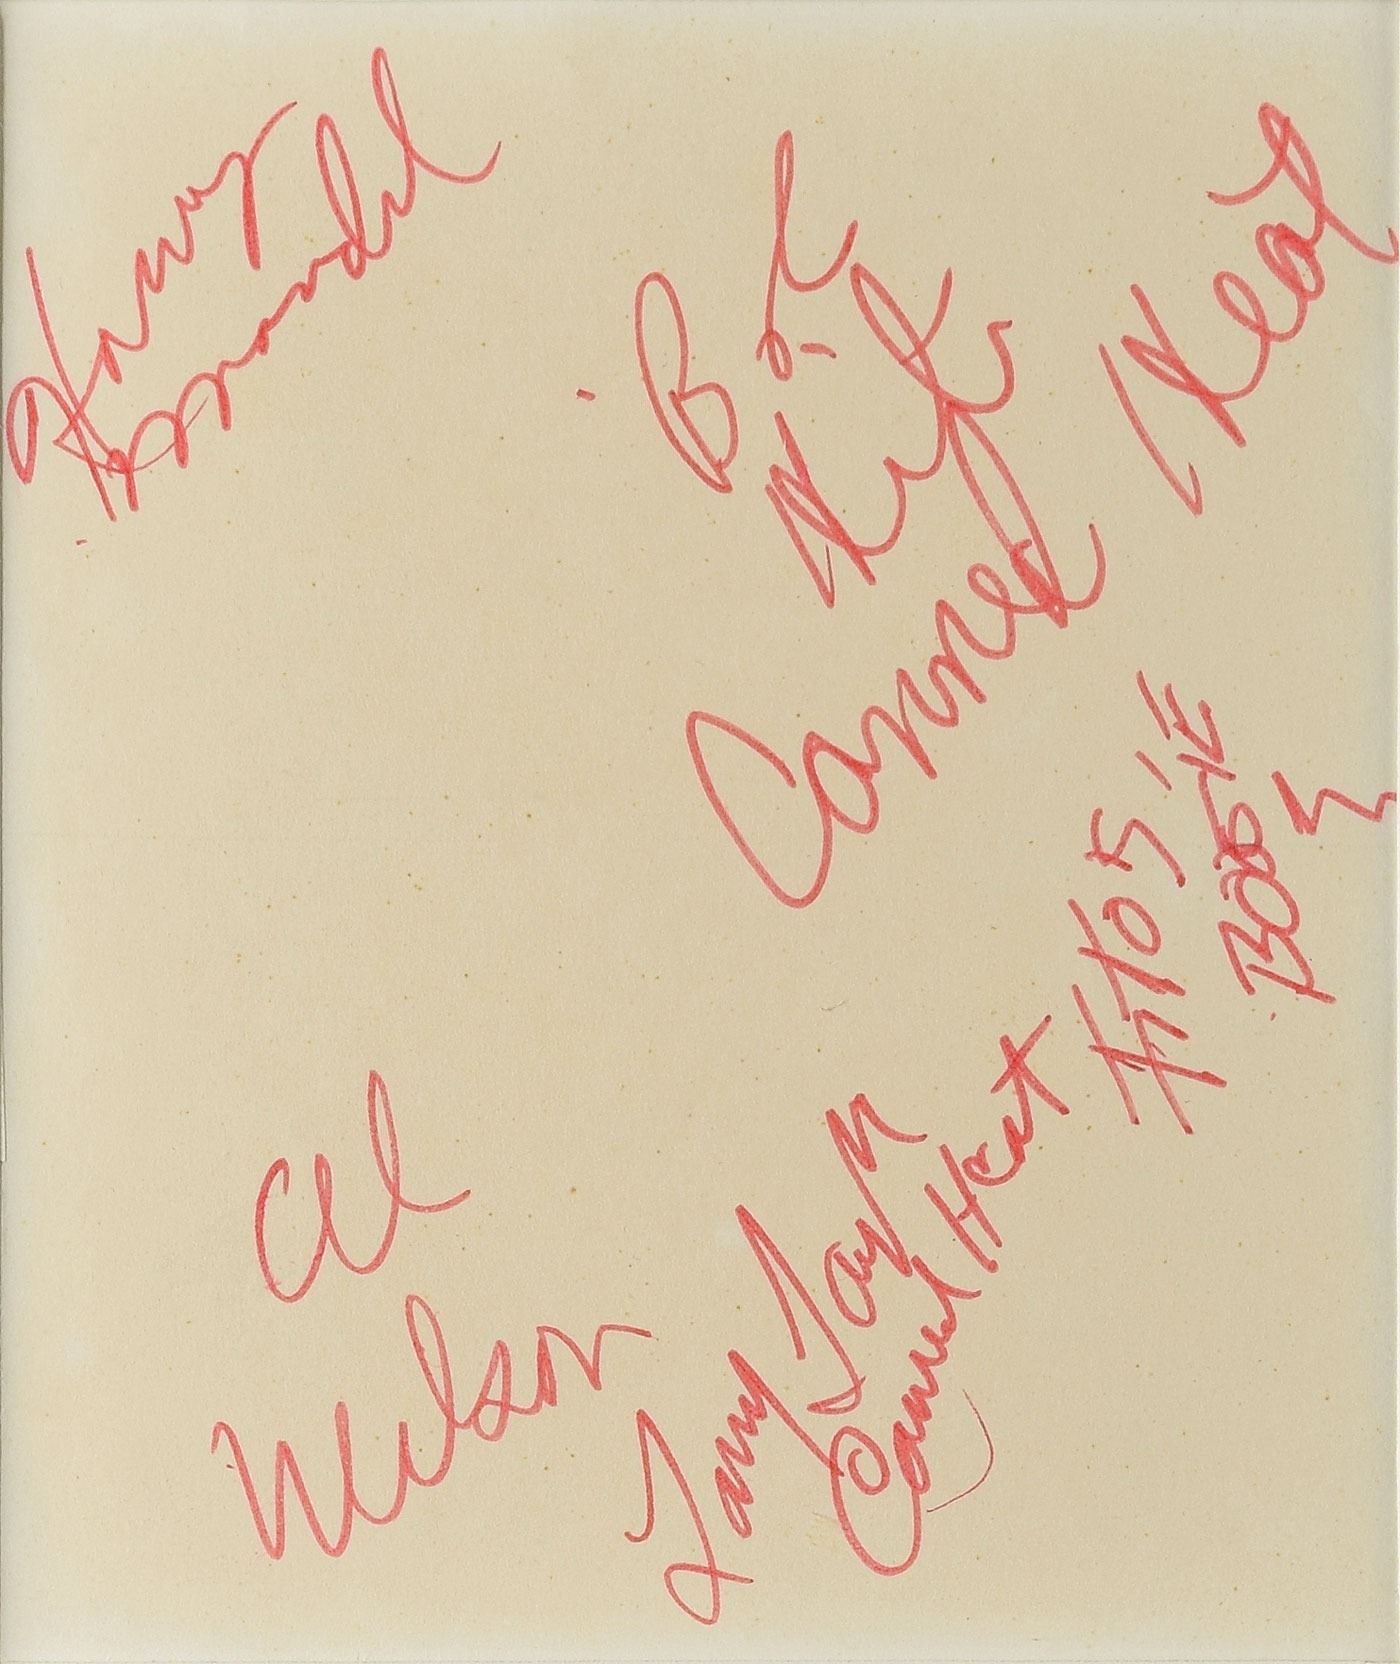 Harvey
Mandel
Bob
Hite
Canned Heat
Al
Wilson
Larry Taylor
Canned Heat
BOOGIE